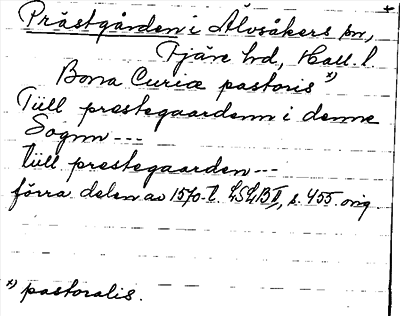 Prästgården i Älvsåkers sn,
Fjäre hd, Hall. l.
Bona Curiæ pastoris x)
Tiill prestegaardenn i denne
Sognn ---
tiill prestegaarden ---
förra delen av 1570-t. LSLB II, s. 455. orig
x) pastoralis.